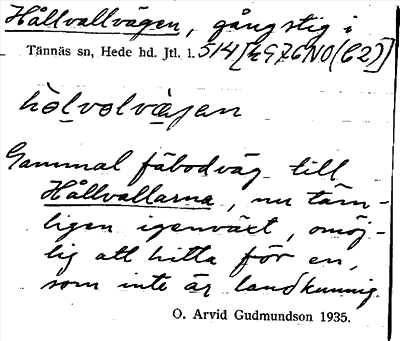 Hållvallvägen, gångstig i
Tännäs sn, Hede hd. Jtl. l. 514[4976NO(62)]
hòlvolvägen
Gammal fäbodväg till
Hållvallarna, nu täm-
ligen igenväxt, omöj-
lig att hitta för en,
som inte är landkunnig.
O. Arvid Gudmundson 1935.